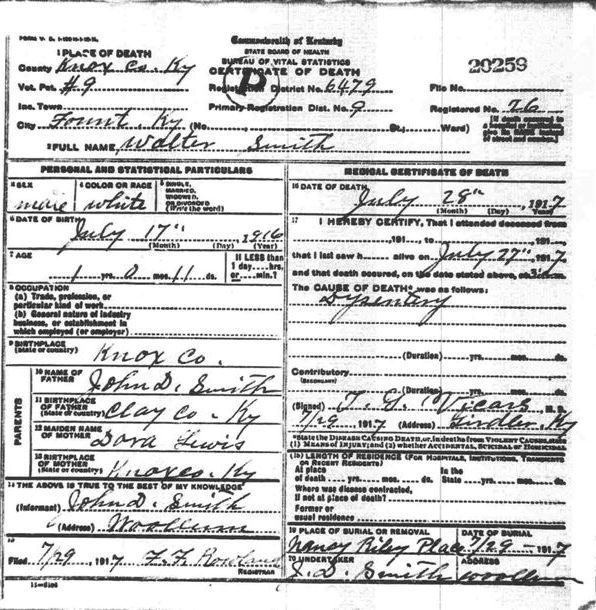 Commonwealth of Kentucky
STATE BOARD OF HEALTH
BUREAU OF VITAL STATISTICS
CERTIFICATE OF DEATH
1 PLACE OF DEATH
County Knox Co. Ky
Vot. Pct. #9
Inc. Town
City Fount, Ky (No. St.; Ward)
Registration District No. 6479
Primary Registration Dist. No. 9
20259
File No.
Registered No. 26
[If death occurred in a hospital or institution give its NAME instead of street and number.]
2 FULL NAME Walter Smith
PERSONAL AND STATISTICAL PARTICULARS
3 SEX
male
4 COLOR OR RACE
white
5 SINGLE, MARRIED, WIDOWED, OR DIVORCED (Write the word)
6 DATE OF BIRTH
July 17th, 1916
(Month) (Day) (Year)
7 AGE
1 yrs. 0 mos. 11 ds.
If LESS than 1 day....hrs. or....min.?
8 OCCUPATION
(a) Trade, profession, or particular kind of work
(b) General nature of industry business, or establishment in which employed (or employer)
9 BIRTHPLACE (State or country)
Knox Co.
PARENTS
10 NAME OF FATHER
John D. Smith
11 BIRTHPLACE OF FATHER (State or country)
Clay Co. Ky
12 MAIDEN NAME OF MOTHER
Dora Lewis
13 BIRTHPLACE OF MOTHER (State or country)
Ky
14 THE ABOVE IS TRUE TO THE BEST OF MY KNOWLEDGE
(Informant) John D. Smith
(Address) Woollum
15
Filed 7/29, 1917
REGISTRAR
MEDICAL CERTIFICATE OF DEATH
16 DATE OF DEATH
July 28th, 1917
(Month) (Day) (Year)
17 I HEREBY CERTIFY, That I attended deceased from
, 191 , to , 191 ,
that I last saw h alive on July 27th, 1917
and that death occured, on the date stated above, at m.
The CAUSE OF DEATH* was as follows:
Dysentery
(Duration) yrs. mos. ds.
Contributory
(SECONDARY)
(Duration) yrs. mos. ds.
(Signed) M. D.
7/29, 1917 (Address) Girdler, Ky
*State the DISEASE CAUSING DEATH, or, in deaths from VIOLENT CAUSES, state (1) MEANS OF INJURY; and (2) whether ACCIDENTAL, SUICIDAL or HOMICIDAL
18 LENGTH OF RESIDENCE (FOR HOSPITALS, INSTITUTIONS, TRANSIENTS OR RECENT RESIDENTS)
At place of death yrs. mos. ds. In the State yrs. mos. ds.
Where was disease contracted, if not at place of death?
Former or usual residence
19 PLACE OF BURIAL OR REMOVAL
Nancy Riley Place
DATE OF BURIAL
7/29, 1917
20 UNDERTAKER
J. D. Smith
ADDRESS
Woollum